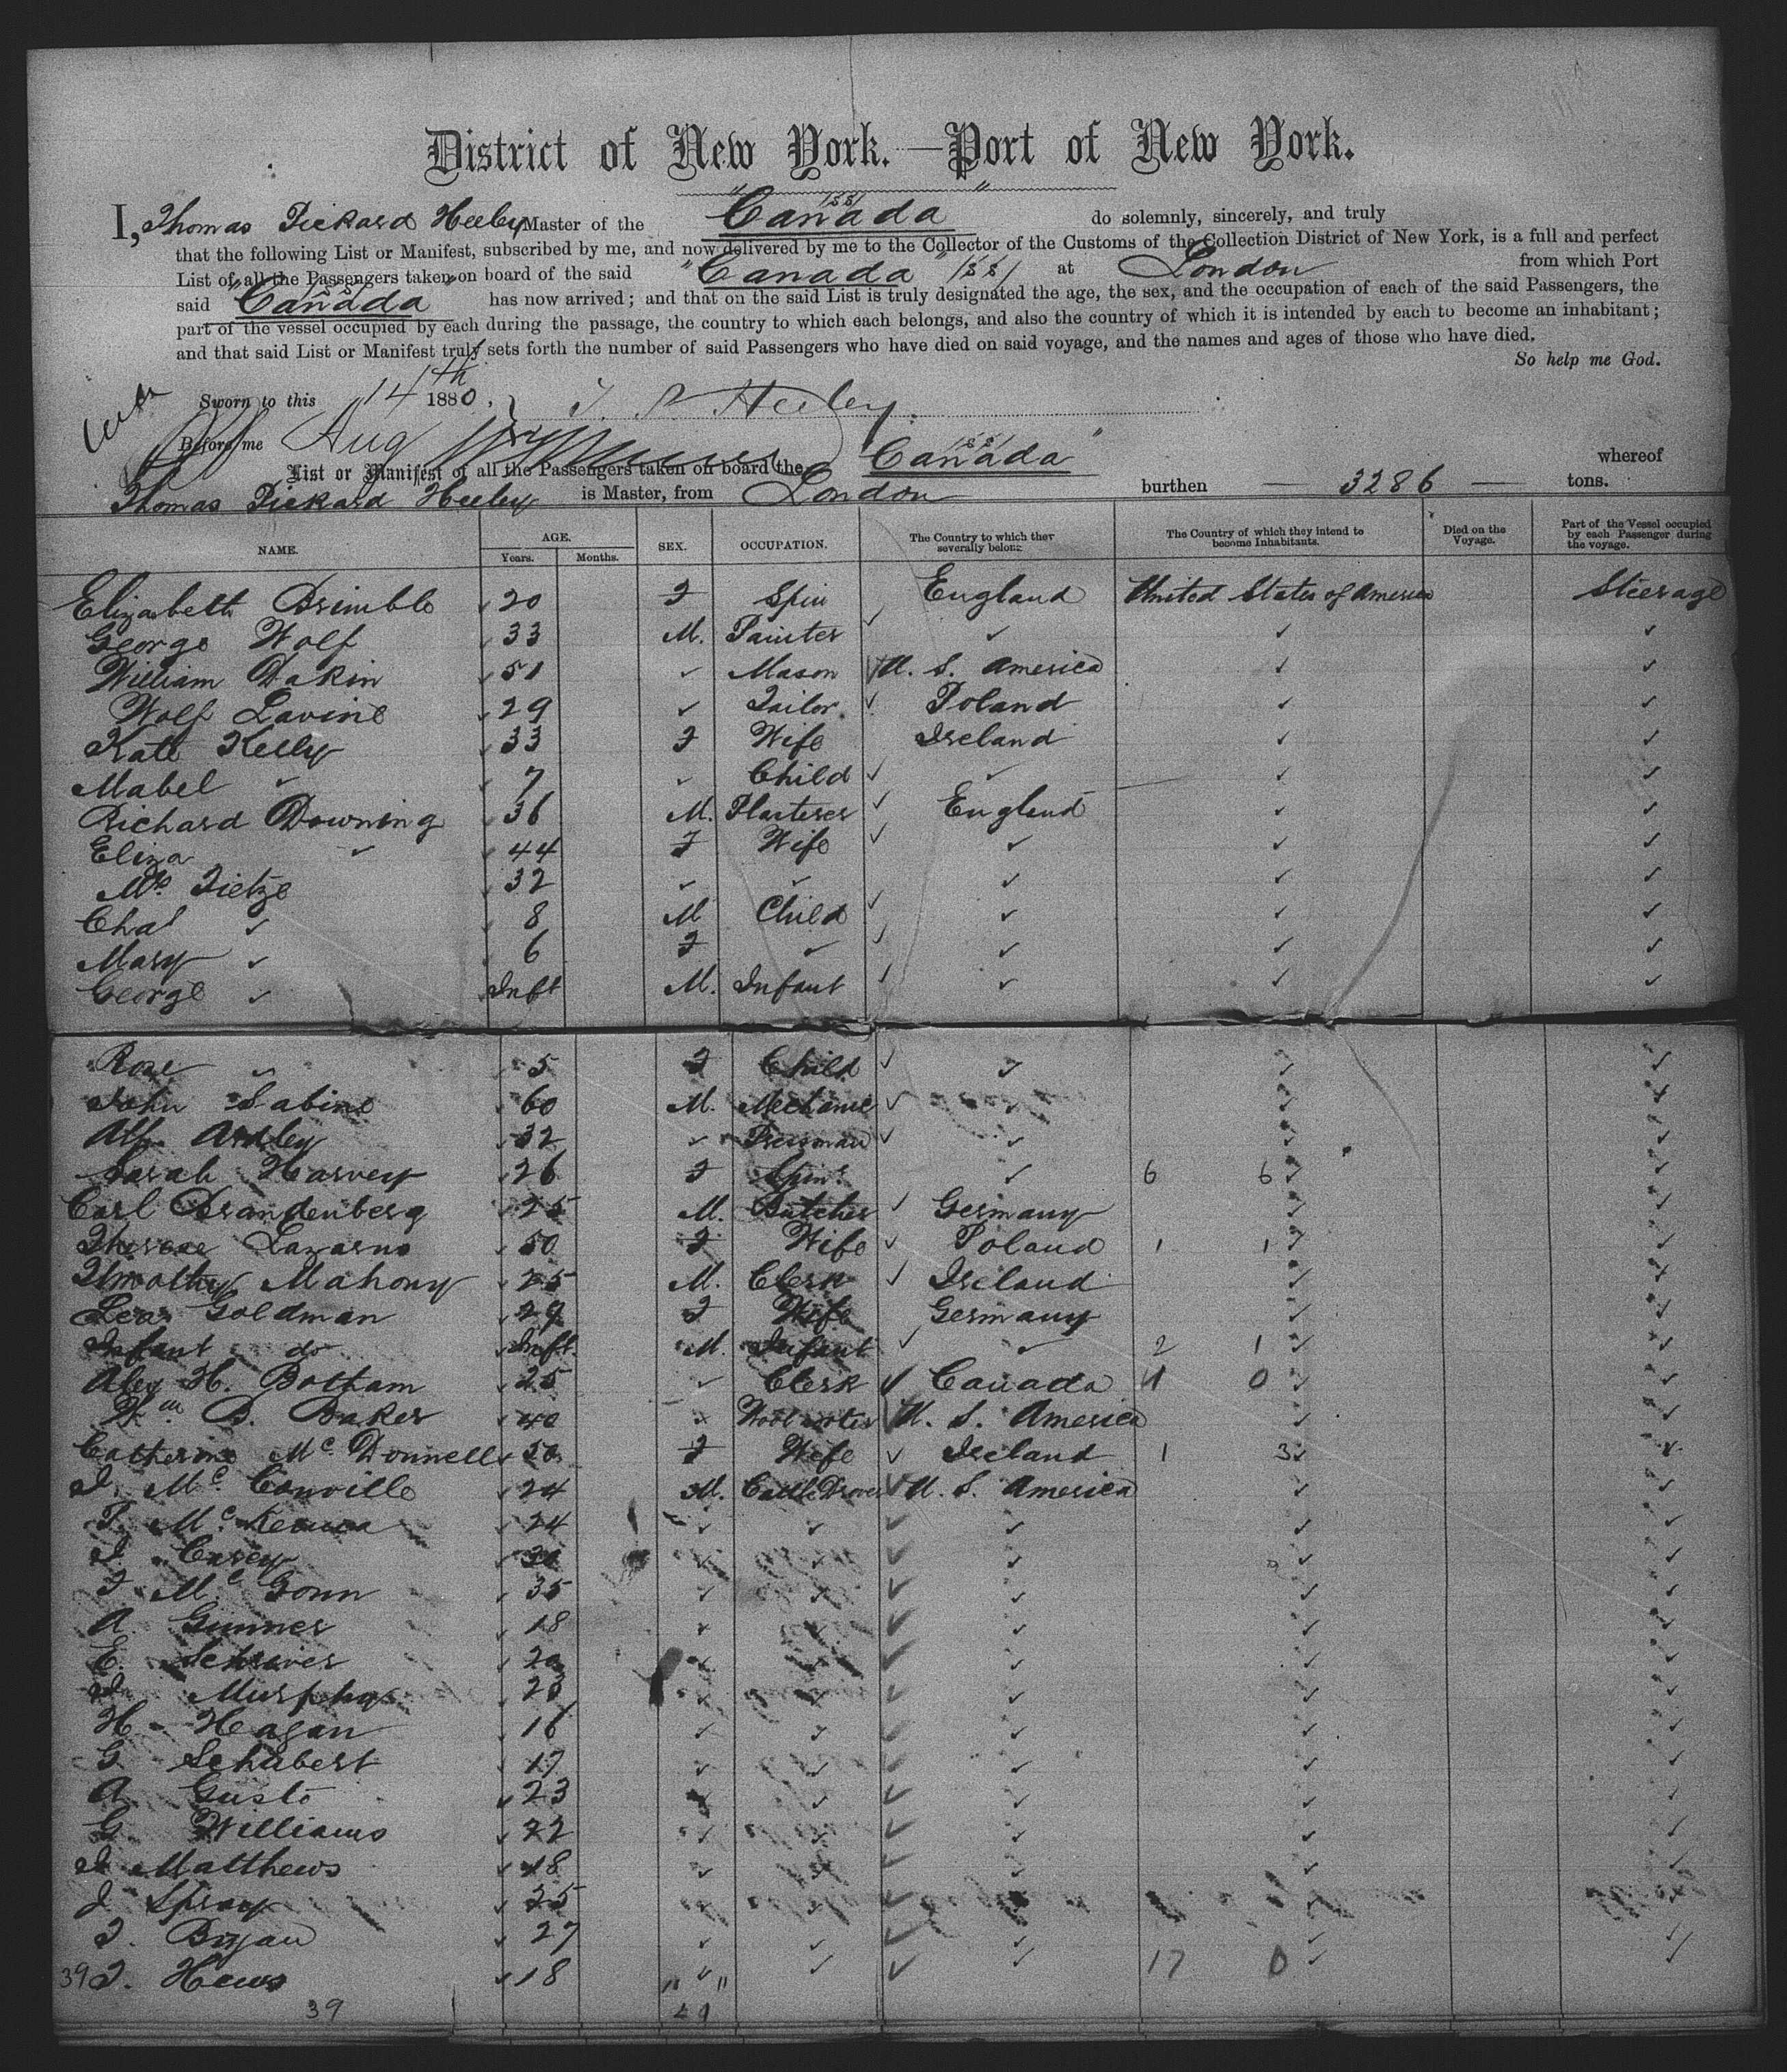 District of New York.—Port of New York.
I, Thomas Pickard Heeley Master of the "Canada" /SS/ do solemnly, sincerely, and truly
that the following List or Manifest, subscribed by me, and now delivered by me to the Collector of the Customs of the Collection District of New York, is a full and perfect
List of all the Passengers taken on board of the said "Canada" /SS/ at London from which Port
said "Canada" /SS/ has now arrived; and that on the said List is truly designated the age, the sex, and the occupation of each of the said Passengers, the
part of the vessel occupied by each during the passage, the country to which each belongs, and also the country of which it is intended by each to become an inhabitant;
and that said List or Manifest truly sets forth the number of said Passengers who have died on said voyage, and the names and ages of those who have died.
So help me God.
Sworn to this 14th 1880, T. P. Heeley
Before me Aug
List or Manifest of all the Passengers taken on board the "Canada" /SS/ whereof
Thomas Pickard Heeley is Master, from London burthen — 3286 — tons.
NAME. AGE. Years. Months. SEX. OCCUPATION. The Country to which they severally belong. The Country of which they intend to become Inhabitants. Died on the Voyage. Part of the Vessel occupied by each Passenger during the voyage.
Elizabeth Brimble ✓ 20 F Spin England United States of America Steerage
George Wolf ✓ 33 M. Painter ✓ ✓ ✓ ✓
William Dakin ✓ 51 ✓ Mason ✓ U. S. America ✓ ✓
Wolf Lavine ✓ 29 ✓ Tailor ✓ Poland ✓ ✓
Kate Kelly ✓ 33 F Wife Ireland ✓ ✓
Mabel ✓ ✓ 7 ✓ Child ✓ ✓ ✓ ✓
Richard Downing ✓ 36 M. Plasterer ✓ England ✓ ✓
Eliza ✓ ✓ 44 F Wife ✓ ✓ ✓ ✓
Mrs Tietze ✓ 32 ✓ ✓ ✓ ✓ ✓
Chas ✓ ✓ 8 M Child ✓ ✓ ✓ ✓
Mary ✓ ✓ 6 F ✓ ✓ ✓ ✓ ✓
George ✓ Inft M. Infant ✓ ✓ ✓ ✓
Rose ✓ ✓ 5 F Child ✓ ✓ ✓ ✓
John Sabine ✓ 60 M. Mechanic ✓ ✓ ✓ ✓
Alf Ardley ✓ 32 ✓ Pressman ✓ ✓ ✓ ✓
Sarah Harvey ✓ 26 F Spin ✓ 6 6 ✓ ✓
Carl Brandenberg ✓ 25 M. Butcher ✓ Germany ✓ ✓
Therese Lazarus ✓ 50 F Wife ✓ Poland 1 1 ✓ ✓
Timothy Mahony ✓ 25 M. Clerk ✓ Ireland ✓ ✓
Lea Goldman ✓ 29 F Wife Germany ✓ ✓
Infant do ✓ Inft. M. Infant ✓ ✓ 2 1 ✓ ✓
Alex H. Botham ✓ 25 ✓ Clerk ✓ Canada 4 0 ✓ ✓
Wm B. Baker ✓ 40 ✓ U. S. America ✓ ✓
Catherine McDonnell ✓ 50 F Wife ✓ Ireland 1 3 ✓ ✓
J. McConville ✓ 24 M. Cattle Drover ✓ U. S. America ✓ ✓
P. McKenna ✓ 24 ✓ ✓ ✓ ✓ ✓ ✓
J. Casey ✓ 30 ✓ ✓ ✓ ✓ ✓ ✓
T. McGonn ✓ 35 ✓ ✓ ✓ ✓ ✓ ✓
A. Gunner ✓ 18 ✓ ✓ ✓ ✓ ✓ ✓
E. Schriver ✓ 20 ✓ ✓ ✓ ✓ ✓ ✓
J. Murphy ✓ 23 ✓ ✓ ✓ ✓ ✓ ✓
H. Heagan ✓ 16 ✓ ✓ ✓ ✓ ✓ ✓
G. Schubert ✓ 17 ✓ ✓ ✓ ✓ ✓ ✓
A. Gusto ✓ 23 ✓ ✓ ✓ ✓ ✓ ✓
G. Williams ✓ 22 ✓ ✓ ✓ ✓ ✓ ✓
J. Matthews ✓ 18 ✓ ✓ ✓ ✓ ✓ ✓
J. Spray ✓ 25 ✓ ✓ ✓ ✓ ✓ ✓
T. Bryan ✓ 27 ✓ ✓ ✓ ✓ ✓ ✓
39 T. Hews ✓ 18 " ✓ " ✓ ✓ ✓ 17 0 ✓ ✓
39